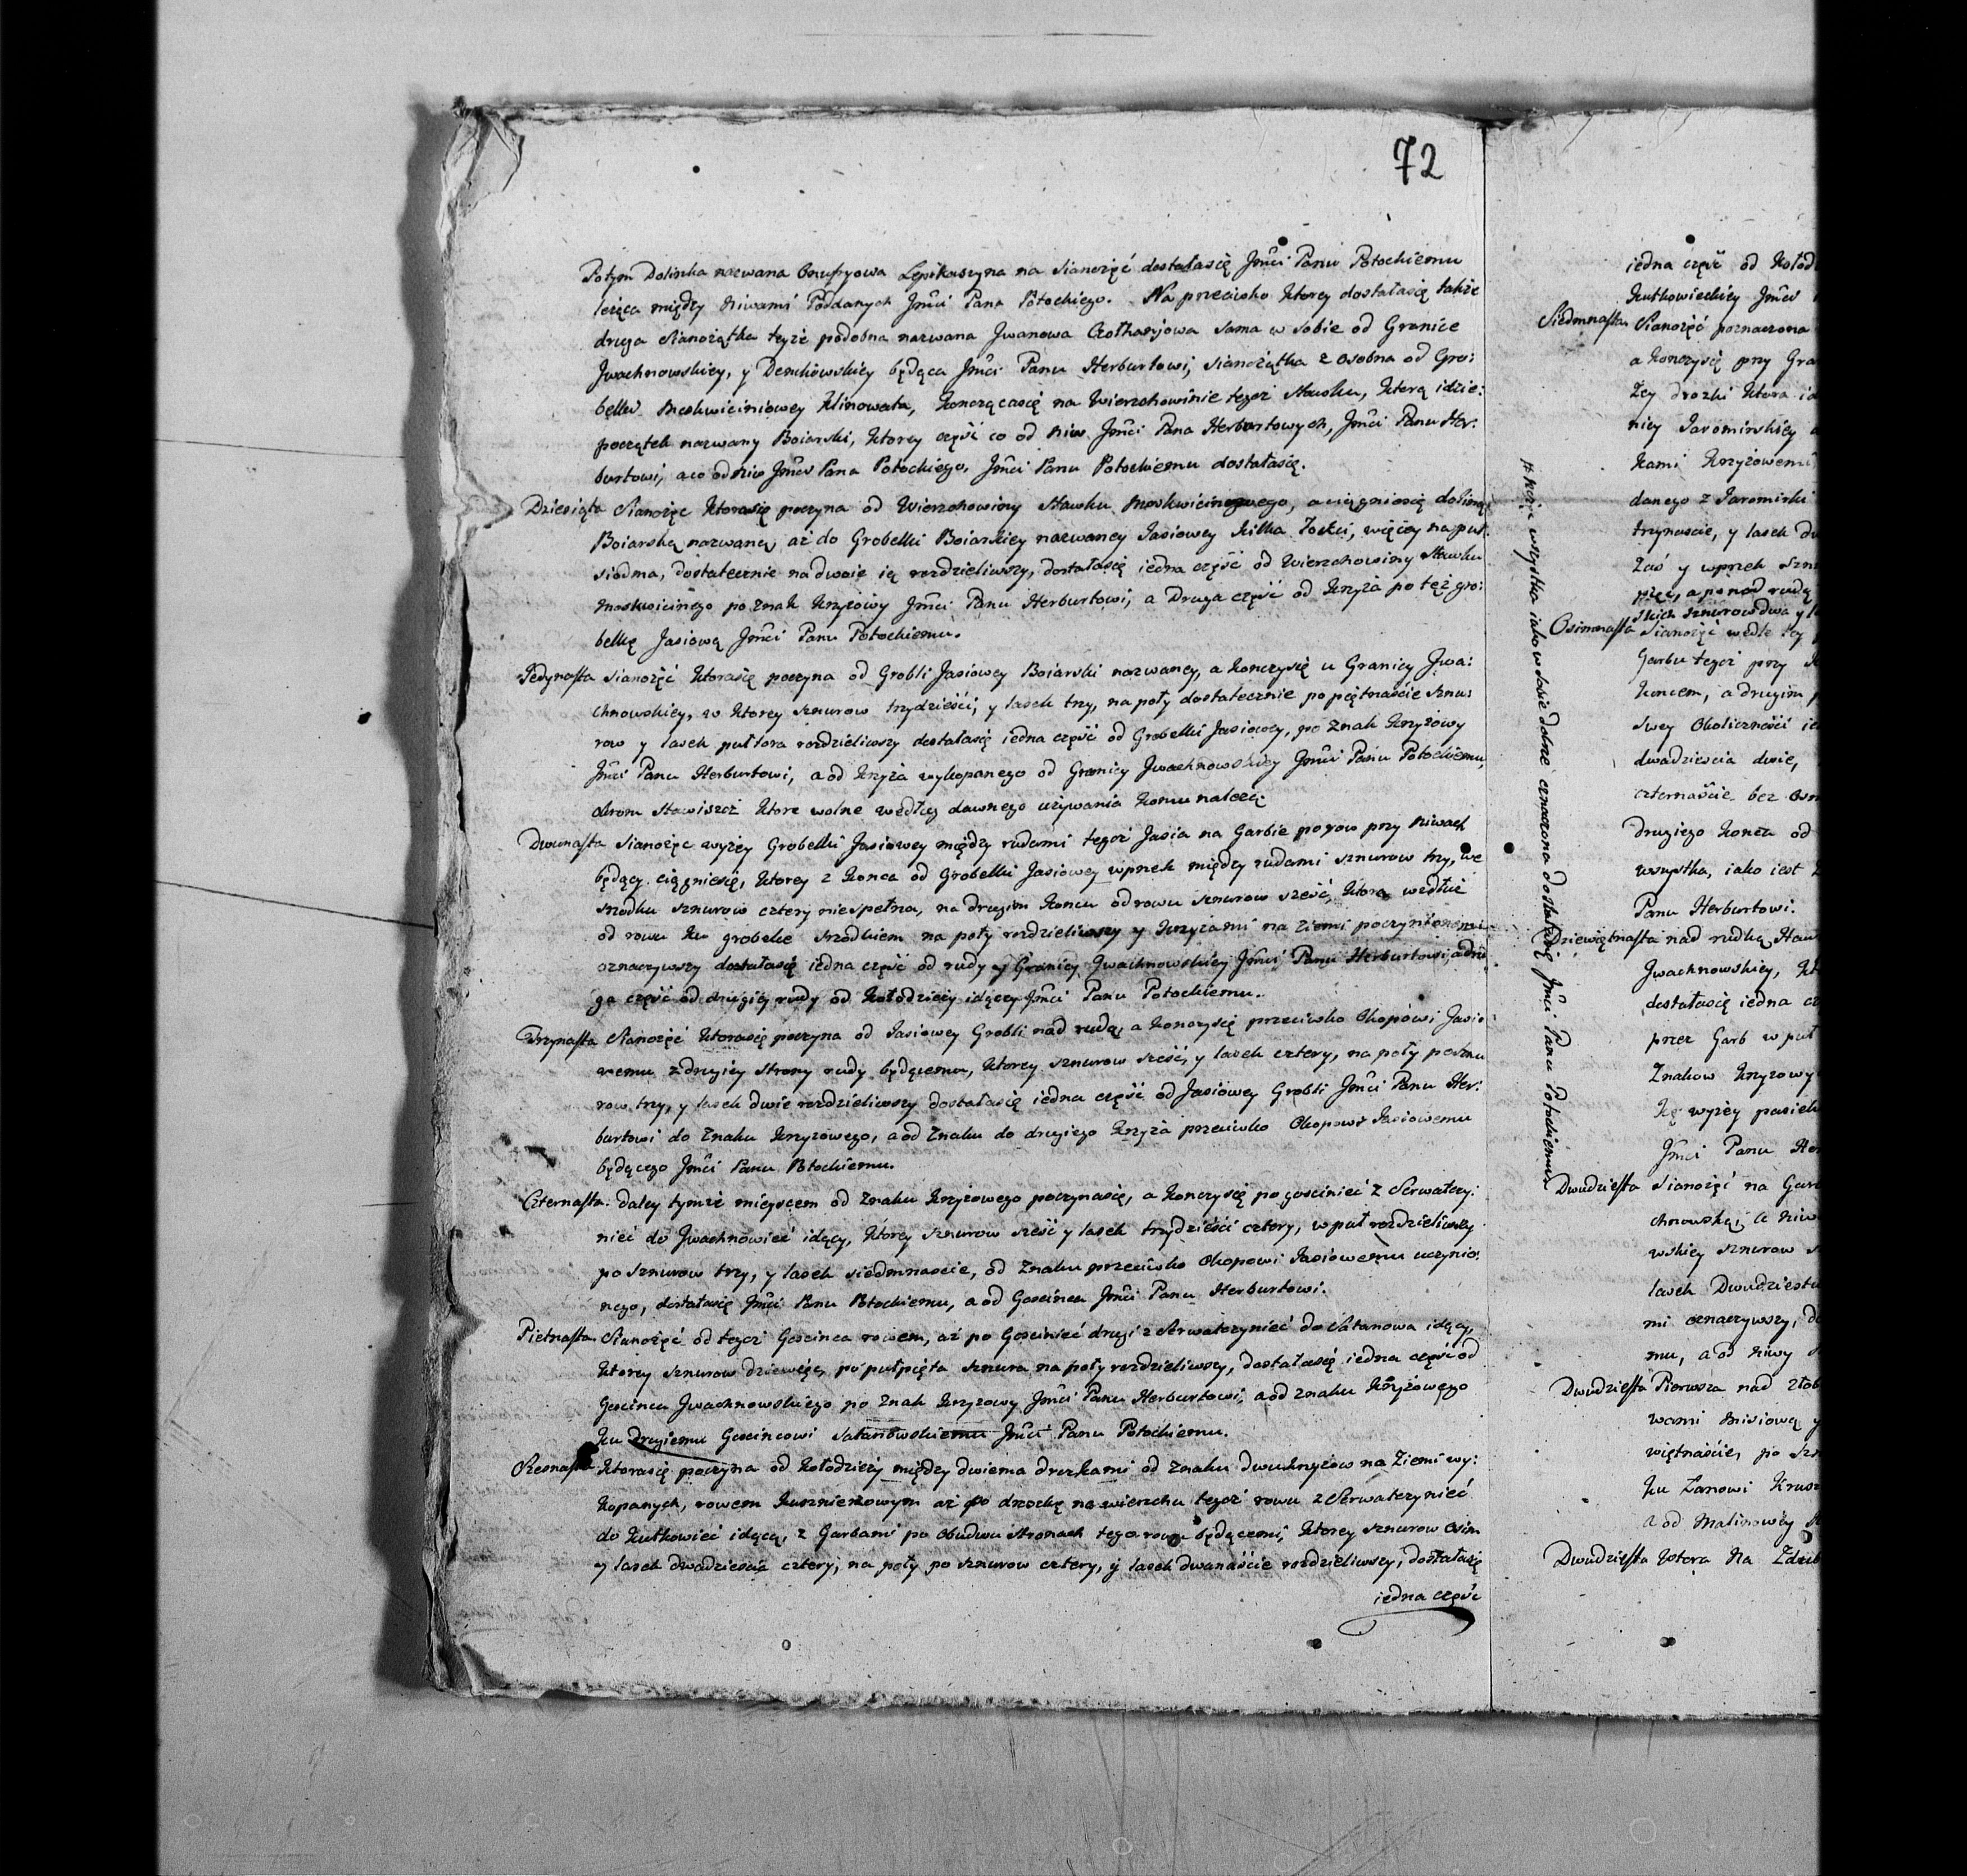 72
Potym Dolinka nazwana Onufryowa Lepikaszyna na Sianożęć dostałasię Jmći Panu Potockiemu
leżąca między Niwami Poddanych Jmći Pana Potockiego. Na przeciwko ktorey dostałasię także
druga Sianożątka teyże podobna nazwana Jwanowa sama w sobie od Granice
Jwachnowskiey, y Demkowskiey będąca Jmći Panu Herburtowi, Sianożątka z osobna od Gro:
belki Moskwiciniowey Klinowata, kończącasię na Wierzchowinie tegoż Stawku, ktorą idzie:
początek nazwany Boiarski, ktorey część co od Niw Jmći Pana Herburtowych, Jmći Panu Her:
burtowi, a co od niw Jmći Pana Potockiego, Jmći Panu Potockiemu dostałasię.
Dziesiąta Sianożęc ktorasię poczyna od Wierzchowiny Stawku Moskwicinowego, a ciągniesię doliną
Boiarską nazwaną, aż do Grobelki Boiarskiey nazwaney Jasiowey kilka Łokci, więcey na puł
siodma, dostatecznie na dwoie ią rozdzieliwszy, dostałasię iedna część od Wierzchowiny Stawku
Moskwicinego po znak krzyżowy Jmći Panu Herburtowi, a Druga część od krzyża po też gro:
belkę Jasiową Jmći Panu Potockiemu.
Jedynasta Sianożęć ktorasię poczyna od Grobli Jasiowey Boiarski nazwaney, a kończysię u Granicy Jwa:
chnowskiey, w ktorey sznurow trydzieści, y lasek trzy, na poły dostatecznie po piętnaście sznu:
row y lasek pułtora rozdzieliwszy dostałasię iedna część od Grobelki Jasiowey, po znak krzyżowy
Jmći Panu Herburtowi, a od krzyża wykopanego od Granicy Jwachnowskiey Jmći Panu Potockiemu,
okrom Stawiszcz ktore wolne według dawnego używania komu należą.
Dwunasta Sianożęc wyżey Grobelki Jasiowey między rudami tegoż Jasia na Garbie po row przy Niwach
będący ciągniesię, ktorey z konca od Grobelki Jasiowey wprzek między rudami sznurow trzy, we
srzodku sznurow cztery niespełna, na drugim koncu od rowu sznurow sześć, ktorą wedłuż
od rowu ku grobelce srzodkiem na poły rozdzieliwszy y krzyżami na ziemi poczynionemi
oznaczywszy dostałasię iedna część od rudy y Granicy Jwachnowskiey Jmći Panu Herburtowi, a dru
ga część od drugiey rudy od Kołodzieży idącey Jmći Panu Potockiemu.
Trzynasta Sianożęć ktorasię poczyna od Jasiowey Grobli nad rudą, a konczysię przeciwko Okopowi Jasio
wemu z drugiey strony rudy będącemu, ktorey sznurow sześć, y lasek cztery, na poły posznu
row trzy, y lasek dwie rozdzieliwszy dostałasię iedna część od Jasiowey Grobli Jmći Panu Her:
burtowi do znaku krzyżowego, a od znaku do drugiego krzyża przeciwko Okopowi Jasiowemu
będącego Jmći Panu Potockiemu.
Czternasta. Daley tymże mieyscem od znaku krzyżowego poczynasię, a konczysię po gościnieć z Serwatezy:
nieć do Jwachnowieć idący, ktorey sznurow sześć y lasek trzydzieści cztery, w puł rozdzieliwszy
po sznurow trzy, y lasek siedmnascie, od znaku przeciwko Okopowi Jasiowemu uczynio:
nego, dostałasię Jmći Panu Potockiemu, a od Goscinca Jmći Panu Herburtowi.
Pietnasta Sianożęć od tegoż Goscinca rowem, aż po Gościnieć drugi z Serwatezynieć do Satanowa idący,
ktorey sznurow dziewięć, po pułpięta sznura na poły rozdzieliwszy, dostałasię iedna część od
Goscinca Jwachnowskiego po znak krzyżowy Jmći Panu Herburtowi, a od znaku krzyżowego
ku Drugiemu Gościncowi Satanowskiemu Jmći Panu Potockiemu.
Szesnasta ktorasię poczyna od kołodzieży między dwiema drożkami od znaku dwukrzyżow na Ziemi wy:
kopanych, rowem kusznierzowym aż po drożkę na wierzchu tegoż rowu z Serwatezynieć
do Kutkowieć idącą, z Garbami po obudwu stronach tego rowu będącemi, ktorey sznurow osm
y lasek dwadziescia cztery, na poły po sznurow cztery, y lasek dwanaście rozdzieliwszy, dostałasię
iedna część
iedna część od Kołod
Kutkowieckiey Jmći
Siedmnasta Sianożęć poznaczona
a konczysię przy Gra
żey drożki ktora
niey Jaromirskiey
kami krzyżowemi
danego z Jaromirki
trzynascie, y lasek
Zaś y wprzek
Osimnasta Sianożęć wedle tey
Garbu tegoż przy
koncem, a drugim
swey Okoliczności
dwadziescia dwie,
czternaście bez
drugiego konca od
wszystka, iako iest
Panu Herburtowi.
Dziewiętnasta nad rudką
Jwachnowskiey,
dostałasię iedna
przez Garb w puł
Znakow krzyżowy
kę wyżey pasiek
Jmći Panu
Dwudziesta Sianożęć na
chnowską, a niw
wskiey sznurow
lasek Dwudziestu
mi oznaczywszy,
mu, a od niwy
Dwudziesta Pierwsza nad
wami
więtnaście, po
ku Łanowi
a od Malinowey
Dwudziesta Wtora Na
wszystka iako w sobie dobrze oznaczona dostałasię Jmći Panu Potockiemu